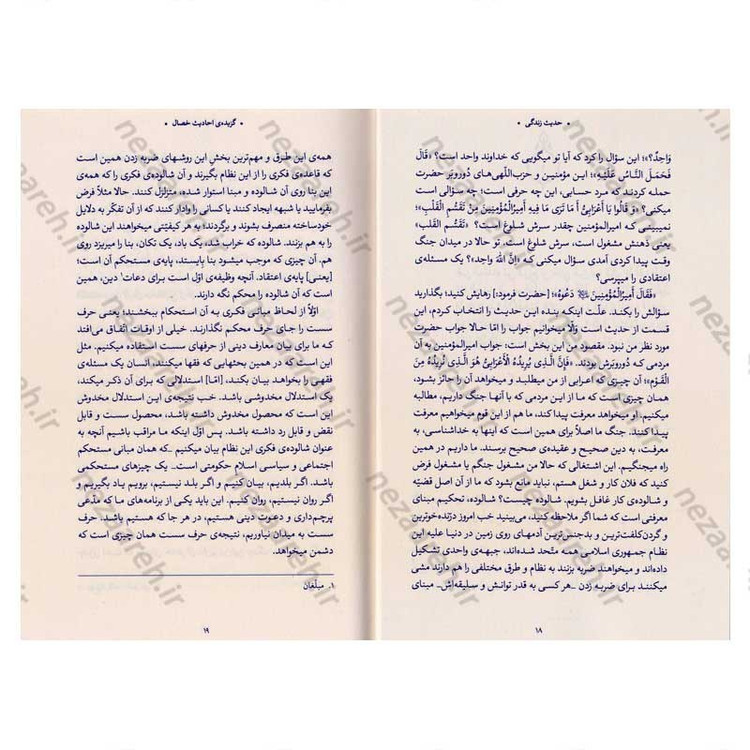 • حدیث زندگی •
واحِدٌ؟»؛ این سؤال را کرد که آیا تو میگویی که خداوند واحد است؟ «قالَ
فَحَمَلَ النّاسُ عَلَیهِ»؛ این مؤمنین و حزب‌اللّهی‌های دوروبَرِ حضرت
حمله کردند که مرد حسابی، این چه حرفی است؛ چه سؤالی است
میکنی؟ «وَ قالوا یا أَعرابِیُّ أَ ما تَریٰ ما فیهِ أَمیرُالمُؤمِنینَ مِن تَقَسُّمِ القَلبِ»؛
نمیبینی که امیرالمؤمنین چقدر سرش شلوغ است؟ «تَقَسُّم القَلب»
یعنی ذهنش مشغول است، سرش شلوغ است. تو حالا در میدان جنگ
وقت پیدا کردی آمدی سؤال میکنی که «إنَّ اللهَ واحِد»؟ یک مسئله‌ی
اعتقادی را میپرسی؟
«فَقالَ أَمیرُالمُؤمِنینَ دَعوهُ»؛ [حضرت فرمود:] رهایش کنید؛ بگذارید
سؤالش را بکند. علّت اینکه بنده این حدیث را انتخاب کردم، این
قسمت از حدیث است والّا میخوانیم جواب را امّا حالا جواب حضرت
مورد نظر من نبود. مقصود من این بخش است؛ جواب امیرالمؤمنین به آن
مردمی که دوروبَرش بودند. «فَإِنَّ الَّذی یُریدُهُ الأَعرابِیُّ هُوَ الَّذی نُریدُهُ مِنَ
القَومِ»؛ آن چیزی که اعرابی از من میطلبد و میخواهد آن را حائز بشود،
همان چیزی است که ما از این مردمی که با آنها جنگ داریم، مطالبه
میکنیم. او میخواهد معرفت پیدا کند، ما هم از این قوم میخواهیم معرفت
پیدا کنند. جنگ ما اصلاً برای همین است که اینها به خداشناسی، به
معرفت، به دین صحیح و عقیده‌ی صحیح برسند. ما داریم در همین
راه میجنگیم. این اشتغالی که حالا من مشغول جنگم یا مشغول فرض
کنید که فلان کار و شغل هستم، نباید مانع بشود که ما از آن اصل قضیّه
و شالوده‌ی کار غافل بشویم. شالوده چیست؟ شالوده، تحکیم مبنای
معرفتی است که شما اگر ملاحظه کنید، می‌بینید خب امروز درنده‌خوترین
و گردن‌کلفت‌ترین و بدجنس‌ترین آدمهای روی زمین در دنیا علیه این
نظام جمهوری اسلامی همه متّحد شده‌اند، جبهه‌ی واحدی تشکیل
داده‌اند و میخواهند ضربه بزنند به نظام و طرق مختلفی را هم دارند مشی
میکنند برای ضربه زدن _هر کسی به قدر توانش و سلیقه‌اش_ مبنای
۱۸
• گزیده‌ی احادیث خصال •
همه‌ی این طرق و مهم‌ترین بخش این روشهای ضربه زدن همین است
که قاعده‌ی فکری را از این نظام بگیرند و آن شالوده‌ی فکری را که همه‌ی
این بنا روی آن شالوده و مبنا استوار شده، متزلزل کنند. حالا مثلاً فرض
بفرمایید یا شبهه ایجاد کنند یا کسانی را وادار کنند که از آن تفکّر به دلایل
خودساخته منصرف بشوند و برگردند؛ به هر کیفیّتی میخواهند این شالوده
را به هم بزنند. شالوده که خراب شد، یک باد، یک تکان، بنا را میریزد روی
هم. آن چیزی که موجب میشود بنا بایستد، پایه‌ی مستحکم آن است؛
[یعنی] پایه‌ی اعتقاد. آنچه وظیفه‌ی اوّل است برای دعات¹ دین، همین
است که آن شالوده را محکم نگه دارند.
اوّلاً از لحاظ مبانی فکری به آن استحکام ببخشند؛ یعنی حرف
سست را جای حرف محکم نگذارند. خیلی از اوقات اتّفاق می‌افتد
که ما برای بیان معارف دینی از حرفهای سست استفاده میکنیم. مثل
این است که در همین بحثهایی که فقها میکنند، انسان یک مسئله‌ی
فقهی را بخواهد بیان بکند، [امّا] استدلالی که برای آن ذکر میکند،
یک استدلال مخدوشی باشد. خب نتیجه‌ی این استدلال مخدوش
این است که محصول مخدوش داشته باشد، محصول سست و قابل
نقض و قابل رد داشته باشد. پس اوّل اینکه ما مراقب باشیم آنچه به
عنوان شالوده‌ی فکری این نظام بیان میکنیم _که همان مبانی مستحکم
اجتماعی و سیاسی اسلام حکومتی است_ یک چیزهای مستحکمی
باشد. اگر بلدیم، بیان کنیم و اگر بلد نیستیم، برویم یاد بگیریم و
اگر روان نیستیم، روان کنیم. این باید یکی از برنامه‌های ما که مدّعی
پرچم‌داری و دعوت دینی هستیم، در هر جا که هستیم باشد. حرف
سست به میدان نیاوریم، نتیجه‌ی حرف سست همان چیزی است که
دشمن میخواهد.
۱. مبلّغان
۱۹
nezaareh.ir